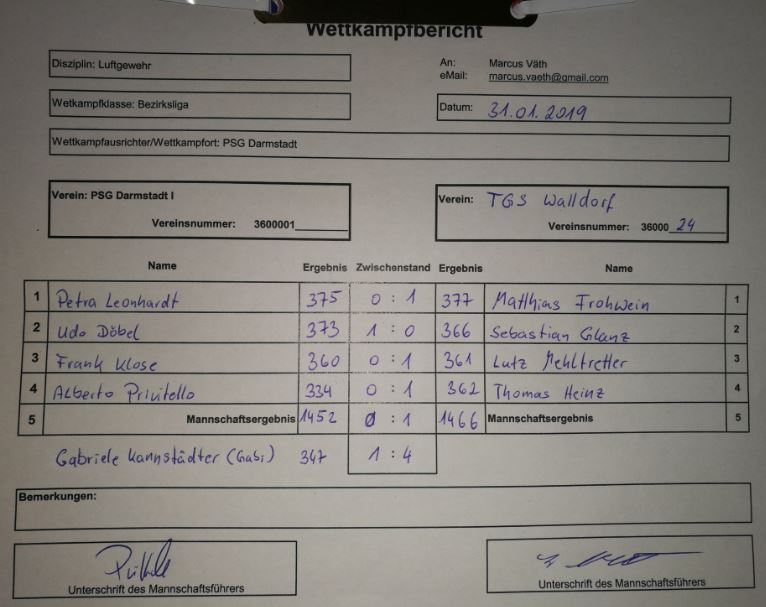 Wettkampfbericht
Disziplin: Luftgewehr
An: Marcus Väth
eMail: marcus.vaeth@gmail.com
Wetkampfklasse: Bezirksliga
Datum: 31.01.2019
Wettkampfausrichter/Wettkampfort: PSG Darmstadt
Verein: PSG Darmstadt I
Vereinsnummer: 3600001
Verein: TGS Walldorf
Vereinsnummer: 36000 24
Name Ergebnis Zwischenstand Ergebnis Name
1 Petra Leonhardt 375 0 : 1 377 Matthias Frohwein 1
2 Udo Döbel 373 1 : 0 366 Sebastian Glanz 2
3 Frank Klose 360 0 : 1 361 Lutz Mehltretter 3
4 Alberto Privitello 334 0 : 1 362 Thomas Heinz 4
5 Mannschaftsergebnis 1452 0 : 1 1466 Mannschaftsergebnis 5
Gabriele Kannstädter (Gabi) 347 1 : 4
Bemerkungen:
Unterschrift des Mannschaftsführers
Unterschrift des Mannschaftsführers